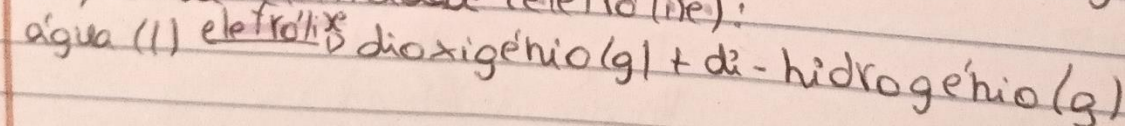 água (l) eletrólise dioxigénio (g) + di-hidrogénio (g)